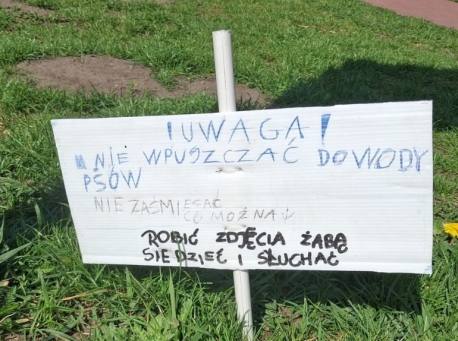 !UWAGA!
NIE WPUSZCZAĆ DO WODY
PSÓW
NIE ZAŚMIECAĆ
CO MOŻNA↓
ROBIĆ ZDJĘCIA ŻABĄ
SIEDZIEĆ I SŁUCHAĆ